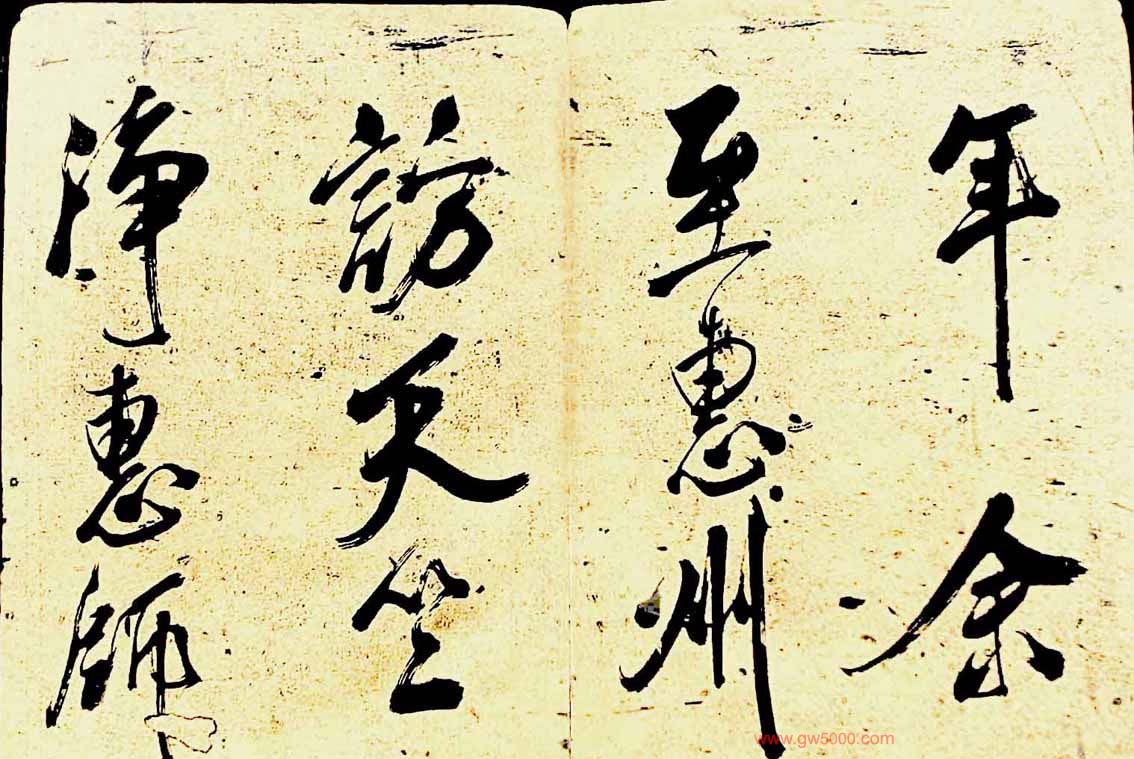 年余
至惠州
訪天竺
淨惠師
www.gw5000.com